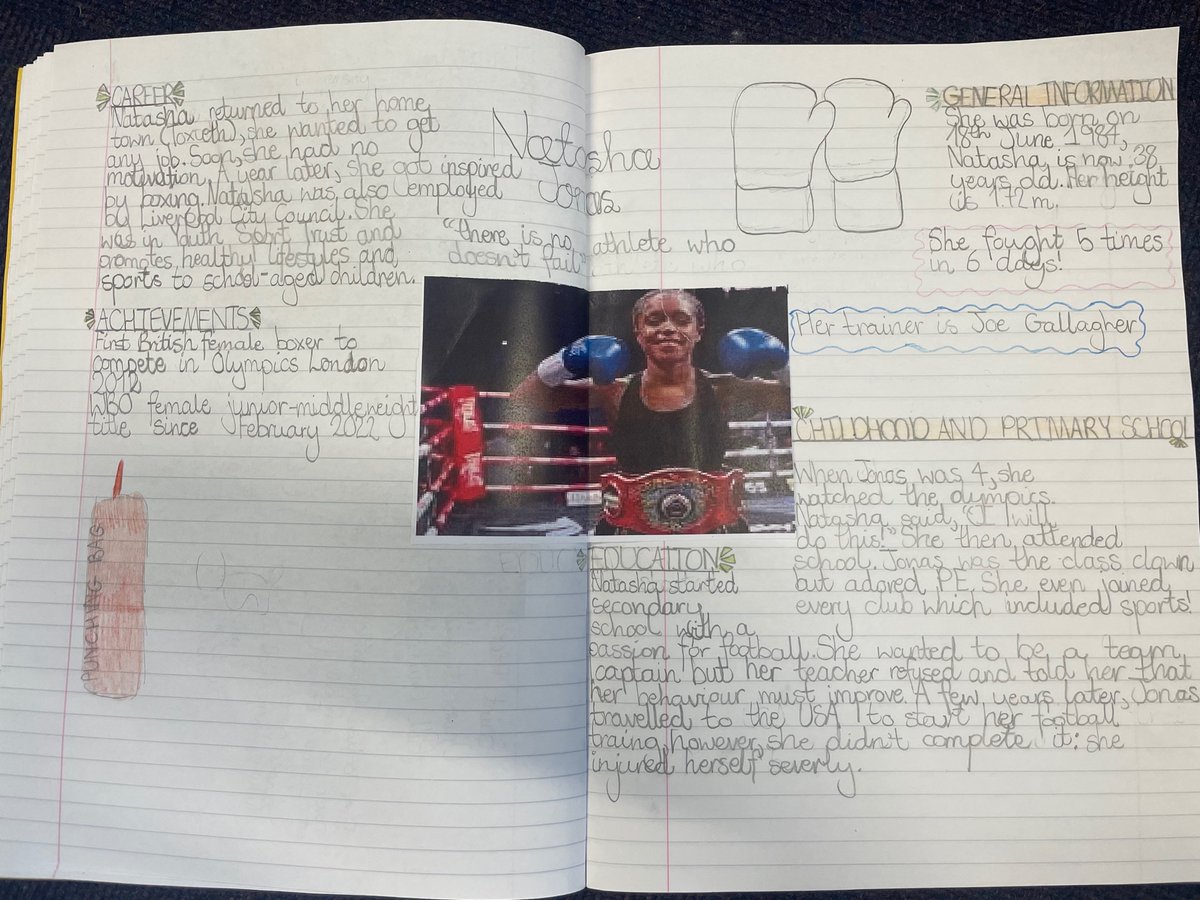 CAREER
Natasha returned to her home
town (Toxteth), she wanted to get
any job. Soon, she had no
motivation. A year later, she got inspired
by boxing. Natasha was also employed
by Liverpool City Council. She
was in Youth Sport Trust and
promotes healthy lifestyles and
sports to school-aged children.
ACHIEVEMENTS
First British female boxer to
compete in Olympics London
2012
WBO female junior-middleweight
title since February 2022
PUNCHING BAG
Natasha
Jonas
"there is no athlete who
doesn't fail"
EDUCATION
Natasha started
secondary
school with a
passion for football. She wanted to be a team
captain but her teacher refused and told her that
her behaviour must improve. A few years later, Jonas
travelled to the USA to start her football
traing, however, she didn't complete it: she
injured herself severly.
GENERAL INFORMATION
She was born on
18th June 1984,
Natasha is now 38
years old. Her height
is 1.72m.
She fought 5 times
in 6 days!
Her trainer is Joe Gallagher
CHILDHOOD AND PRIMARY SCHOOL
When Jonas was 4, she
watched the olympics.
Natasha said, "I will
do this!" She then attended
school. Jonas was the class clown
but adored PE. She even joined
every club which included sports!